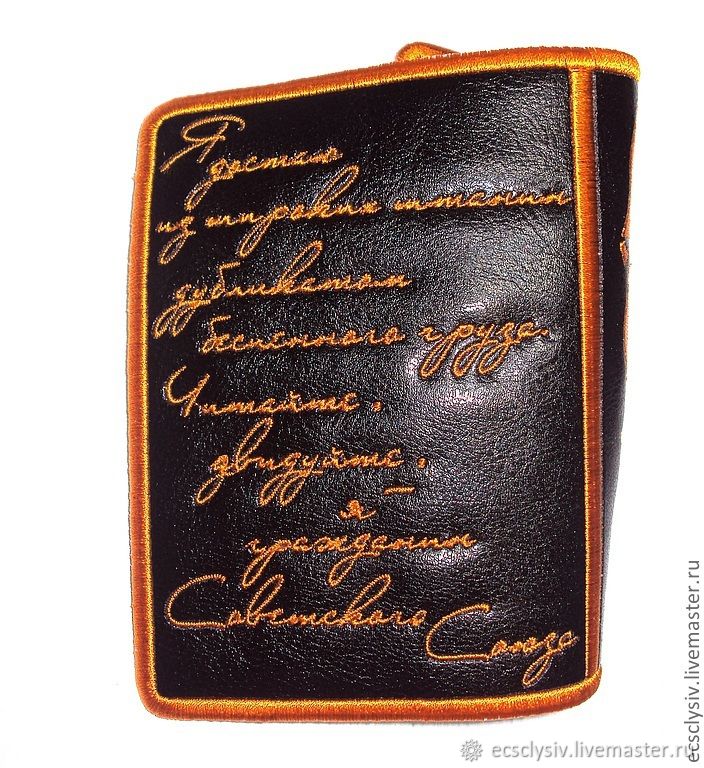 Я
достаю
из широких штанин
дубликатом
бесценного груза.
Читайте,
звидуйте,
я —
гражданин
Советского
Союза
ecsclysiv.livemaster.ru
ecsclysiv.livemaster.ru